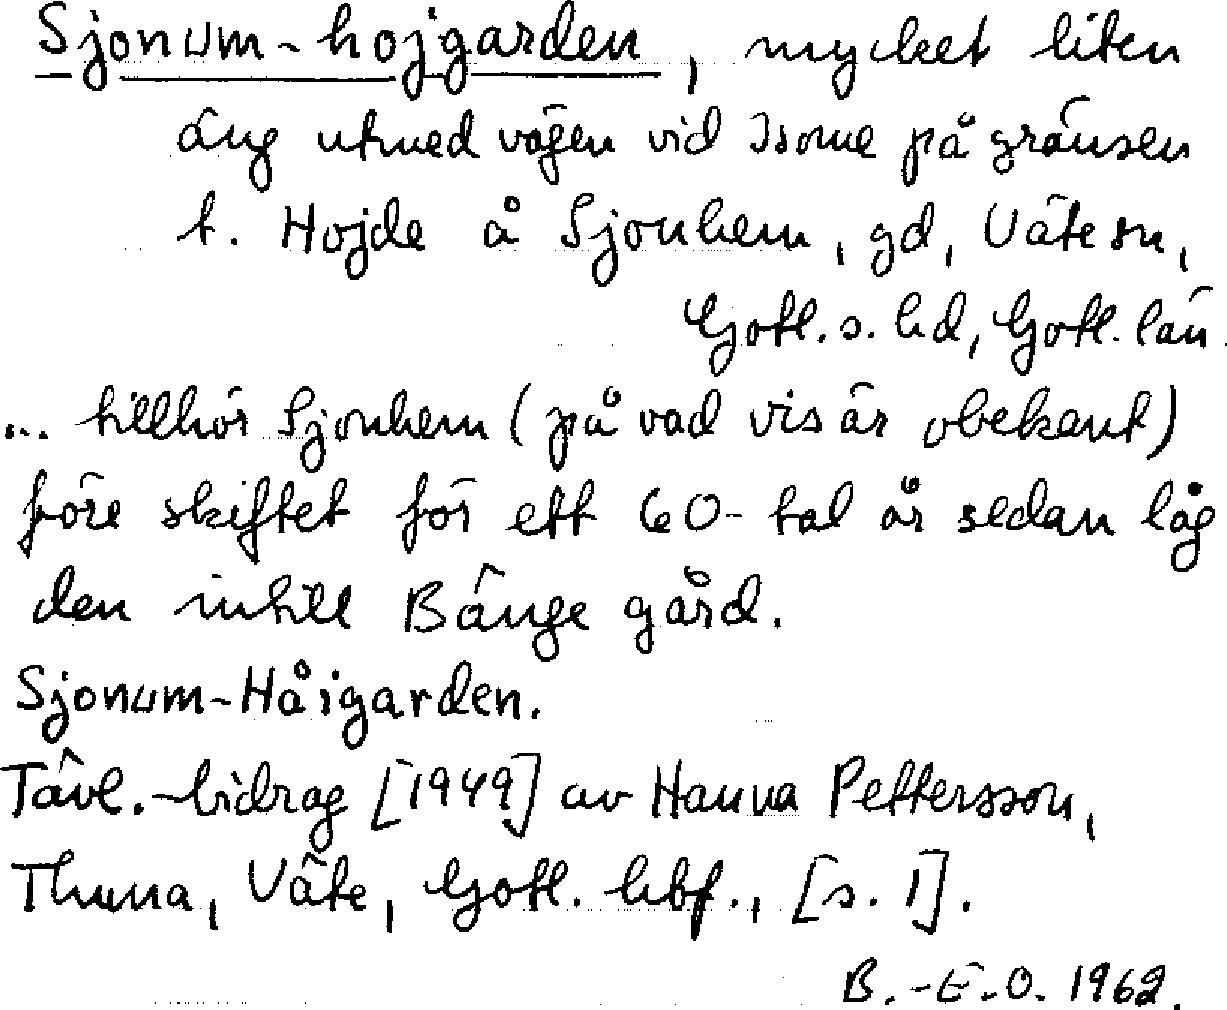 Sjonum-hojgarden, mycket liten
äng utmed vägen vid Isome på gränsen
t. Hojde å Sjonhem, gd, Väte sn,
Gotl. s. hd, Gotl. län.
... tillhör Sjonhem (på vad vis är obekant)
före skiftet för ett 60-tal år sedan låg
den intill Bänge gård.
Sjonum-Håigarden.
Tävl.-bidrag [1949] av Hanna Pettersson,
Thuna, Väte, Gotl. hbf., [s. 1].
B.-E.O. 1962.